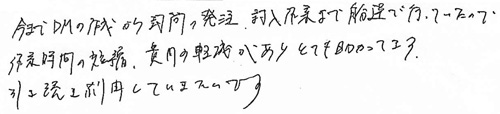 今までDMの作成から封筒の発注、封入作業まで船達で行っていたので
作業時間の短縮、費用の軽減がありとても助かってます。
引き続き利用していきたいです